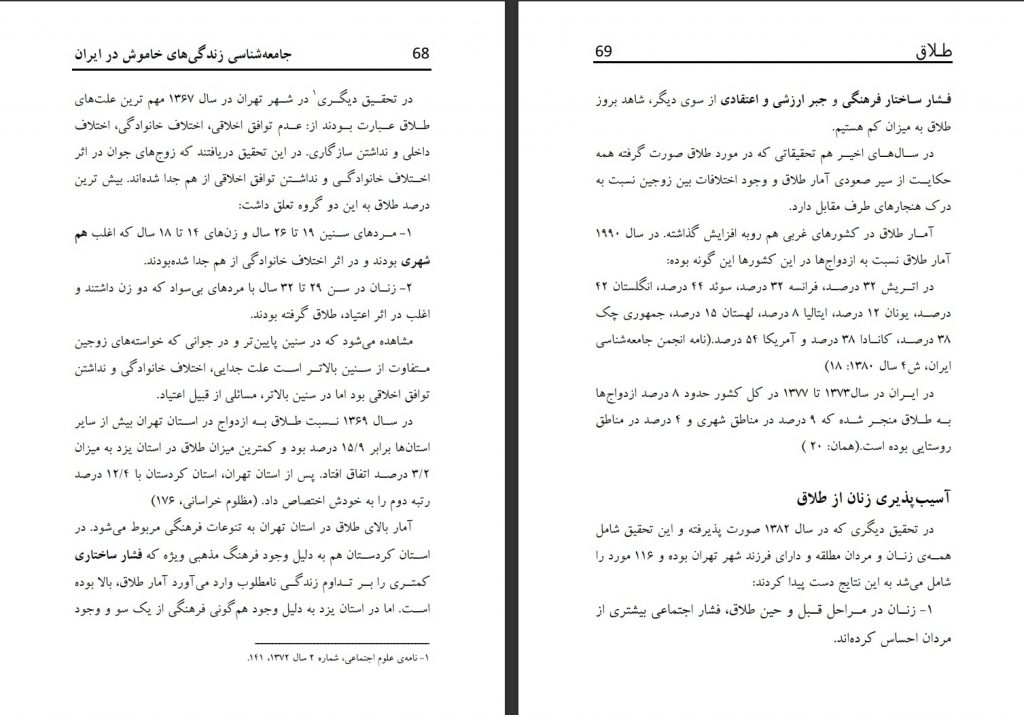 68 جامعه‌شناسی زندگی‌های خاموش در ایران
در تحقیق دیگری۱ در شهر تهران در سال ۱۳۶۷ مهم ترین علت‌های
طلاق عبارت بودند از: عدم توافق اخلاقی، اختلاف خانوادگی، اختلاف
داخلی و نداشتن سازگاری. در این تحقیق دریافتند که زوج‌های جوان در اثر
اختلاف خانوادگی و نداشتن توافق اخلاقی از هم جدا شده‌اند. بیش ترین
درصد طلاق به این دو گروه تعلق داشت:
۱- مردهای سنین ۱۹ تا ۲۶ سال و زن‌های ۱۴ تا ۱۸ سال که اغلب هم
شهری بودند و در اثر اختلاف خانوادگی از هم جدا شده‌بودند.
۲- زنان در سن ۲۹ تا ۳۲ سال با مردهای بی‌سواد که دو زن داشتند و
اغلب در اثر اعتیاد، طلاق گرفته بودند.
مشاهده می‌شود که در سنین پایین‌تر و در جوانی که خواسته‌های زوجین
متفاوت از سنین بالاتر است علت جدایی، اختلاف خانوادگی و نداشتن
توافق اخلاقی بود اما در سنین بالاتر، مسائلی از قبیل اعتیاد.
در سال ۱۳۶۹ نسبت طلاق به ازدواج در استان تهران بیش از سایر
استان‌ها برابر ۱۵/۹ درصد بود و کمترین میزان طلاق در استان یزد به میزان
۳/۲ درصد اتفاق افتاد. پس از استان تهران، استان کردستان با ۱۲/۴ درصد
رتبه دوم را به خودش اختصاص داد. (مظلوم خراسانی، ۱۷۶)
آمار بالای طلاق در استان تهران به تنوعات فرهنگی مربوط می‌شود. در
استان کردستان هم به دلیل وجود فرهنگ مذهبی ویژه که فشار ساختاری
کمتری را بر تداوم زندگی نامطلوب وارد می‌آورد آمار طلاق، بالا بوده
است. اما در استان یزد به دلیل وجود هم‌گونی فرهنگی از یک سو و وجود
۱- نامه‌ی علوم اجتماعی، شماره ۲ سال ۱۳۷۲، ۱۴۱.
طلاق 69
فشار ساختار فرهنگی و جبر ارزشی و اعتقادی از سوی دیگر، شاهد بروز
طلاق به میزان کم هستیم.
در سال‌های اخیر هم تحقیقاتی که در مورد طلاق صورت گرفته همه
حکایت از سیر صعودی آمار طلاق و وجود اختلافات بین زوجین نسبت به
درک هنجارهای طرف مقابل دارد.
آمار طلاق در کشورهای غربی هم روبه افزایش گذاشته. در سال ۱۹۹۰
آمار طلاق نسبت به ازدواج‌ها در این کشورها این گونه بوده:
در اتریش ۳۲ درصد، فرانسه ۳۲ درصد، سوئد ۴۴ درصد، انگلستان ۴۲
درصد، یونان ۱۲ درصد، ایتالیا ۸ درصد، لهستان ۱۵ درصد، جمهوری چک
۳۸ درصد، کانادا ۳۸ درصد و آمریکا ۵۴ درصد.(نامه انجمن جامعه‌شناسی
ایران، ش۴ سال ۱۳۸۰: ۱۸)
در ایران در سال۱۳۷۳ تا ۱۳۷۷ در کل کشور حدود ۸ درصد ازدواج‌ها
به طلاق منجر شده که ۹ درصد در مناطق شهری و ۴ درصد در مناطق
روستایی بوده است.(همان: ۲۰ )
آسیب‌پذیری زنان از طلاق
در تحقیق دیگری که در سال ۱۳۸۲ صورت پذیرفته و این تحقیق شامل
همه‌ی زنان و مردان مطلقه و دارای فرزند شهر تهران بوده و ۱۱۶ مورد را
شامل می‌شد به این نتایج دست پیدا کردند:
۱- زنان در مراحل قبل و حین طلاق، فشار اجتماعی بیشتری از
مردان احساس کرده‌اند.